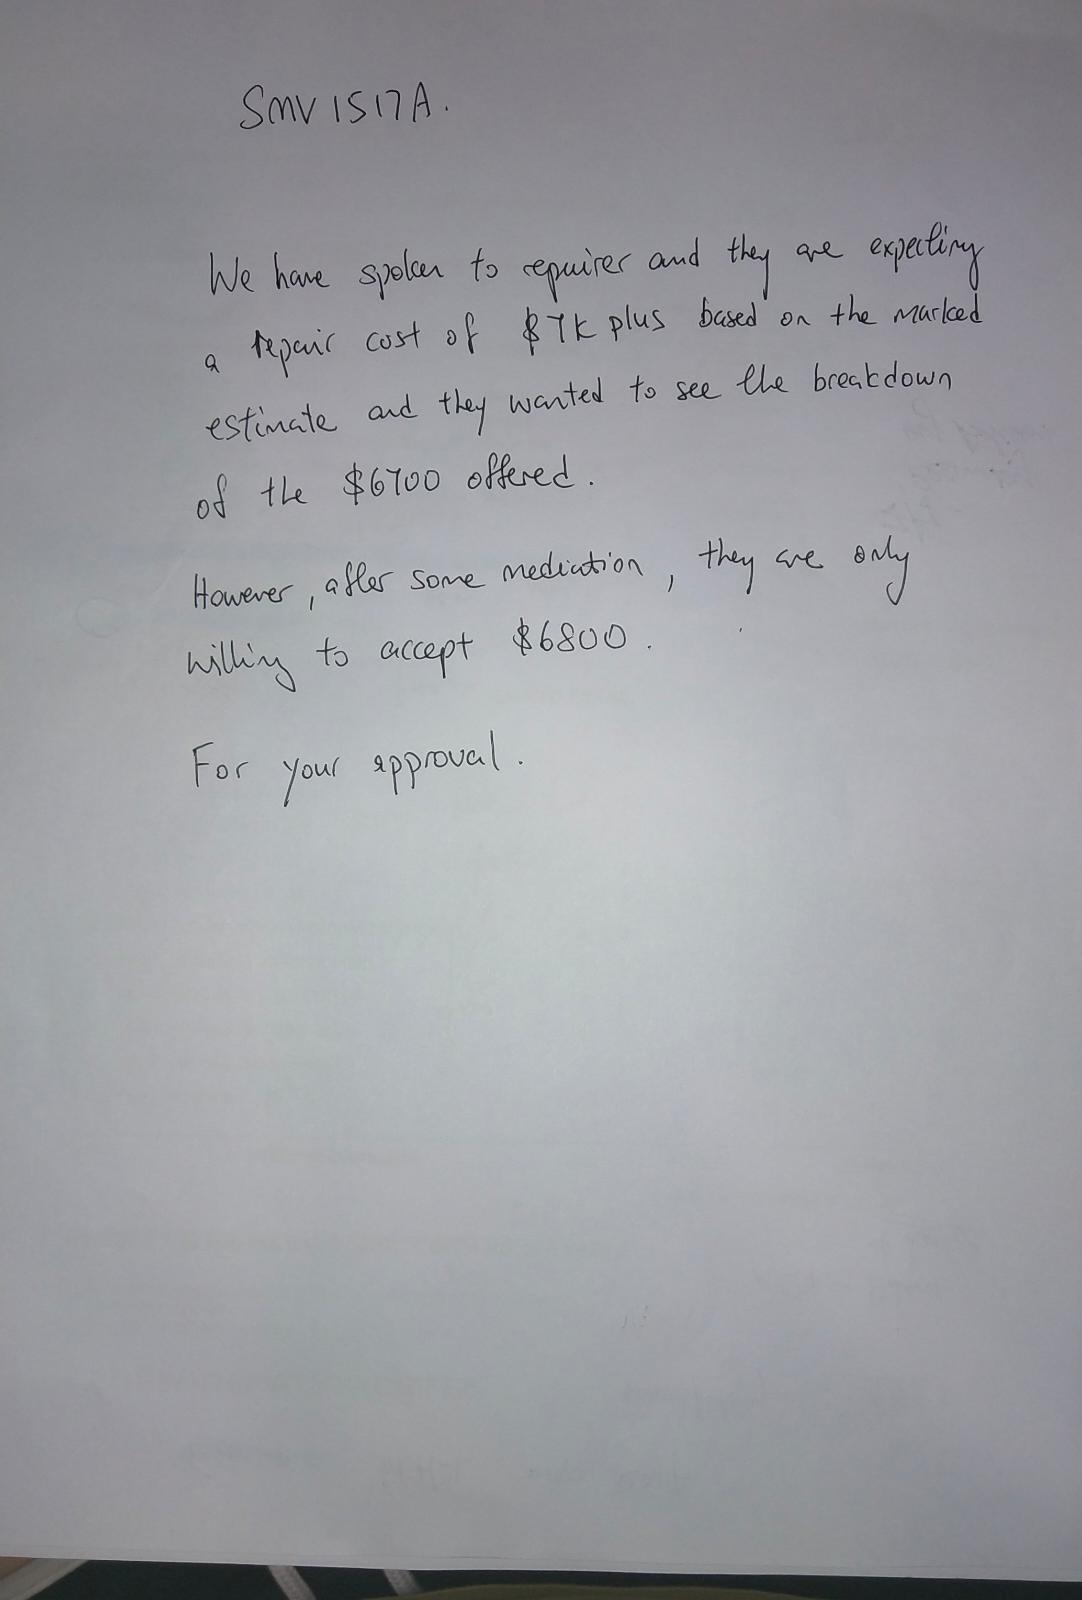 SMV 1517A.
We have spoken to repairer and they are expecting
a repair cost of $7K plus based on the marked
estimate and they wanted to see the breakdown
of the $6700 offered.
However, after some mediation, they are only
willing to accept $6800.
For your approval.